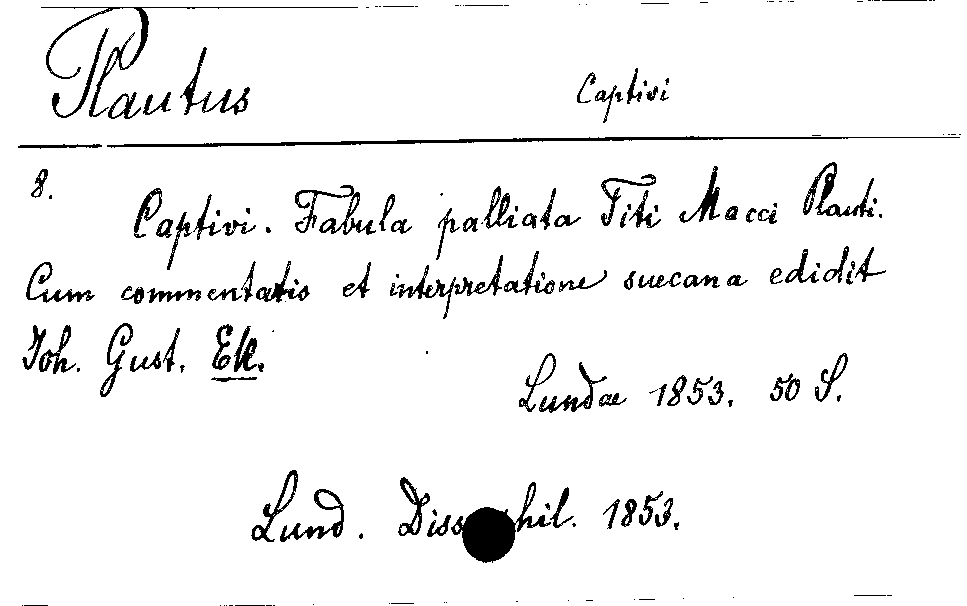 Plautus Captivi
8.
Captivi. Fabula palliata Titi Macci Plauti.
Cum commentatio et interpretatione suecana edidit
Joh. Gust. Ek.
Lundae 1853. 50 S.
Lund. Diss. phil. 1853.